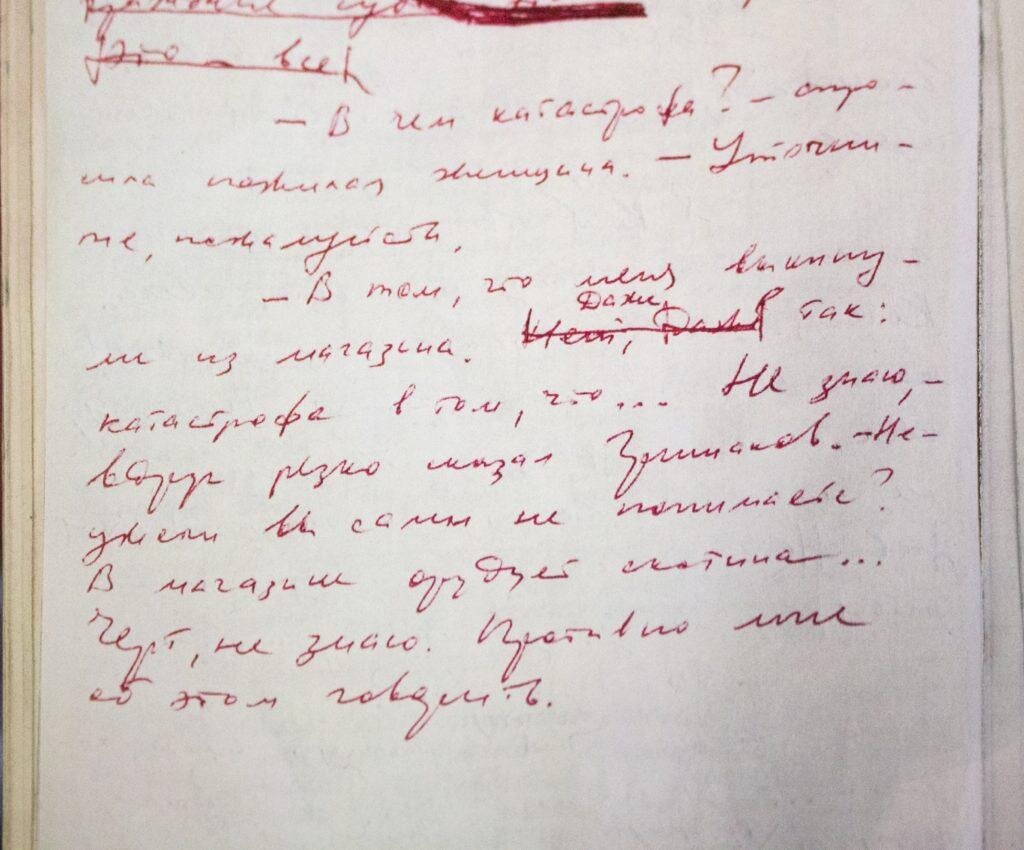 это – все
– В чем катастрофа? – спро-
сила пожилая женщина. – Уточни-
те, пожалуйста,
– В том, что меня выкину-
Даже
ли из магазина. Нет, Даже так:
катастрофа в том, что... Не знаю, –
вдруг резко сказал . – Не-
ужели Вы сами не понимаете?
В магазине орудует скотина...
Черт, не знаю. Противно мне
об этом говорить.